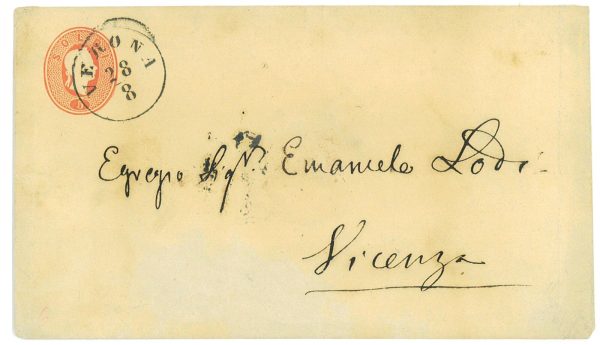 SOLDI
5
VERONA
28
8
Egregio Sigr. Emanuele Lodi
Vicenza